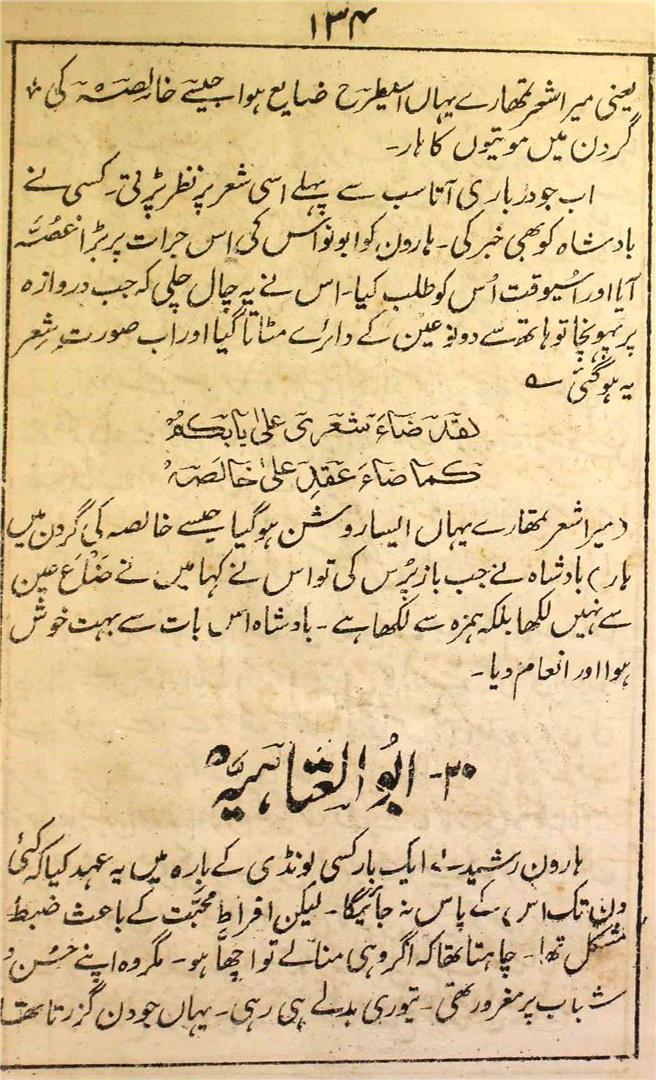 ۱۳۴
یعنی میرا شعر تمھارے یہاں اسیطرح ضایع ہوا جیسے خالِصَہ کی
گردن میں موتیوں کا ہار۔
اب جو درباری آتا سب سے پہلے اسی شعر پر نظر پڑتی۔ کسی نے
بادشاہ کو بھی خبر کی۔ ہارون کو ابو نواس کی اس جرات پر بڑا غصّہ
آیا اور اُسیوقت اُس کو طلب کیا۔ اس نے یہ چال چلی کہ جب دروازہ
پر پہونچا تو ہاتھ سے دونو عین کے دائرے مٹاتا گیا اور اب صورتِ شعر
یہ ہو گئی ؎
لقد ضاءَ شعری علیٰ بابکمُ
کما ضاءَ عقدٌ علیٰ خالصہُ
(میرا شعر تمھارے یہاں ایسا روشن ہو گیا جیسے خالصہ کی گردن میں
ہار) بادشاہ نے جب باز پُرس کی تو اس نے کہا میں نے ضَاعَ عین
سے نہیں لکھا بلکہ ہمزہ سے لکھا ہے۔ بادشاہ اس بات سے بہت خوش
ہوا اور انعام دیا۔
۲۰۔ ابُو العَتاہیَہ
ہارون رشید نے ایک بار کسی لونڈی کے بارہ میں یہ عہد کیا کہ کئی
دن تک اس کے پاس نہ جائیگا۔ لیکن افراطِ محبّت کے باعث ضبط
مشکل تھا۔ چاہتا تھا کہ اگر وہی منالے تو اچھا ہو۔ مگر وہ اپنے حُسن و
شباب پر مغرور تھی۔ تیوری بدلے ہی رہی۔ یہاں جو دن گزرتا تھا